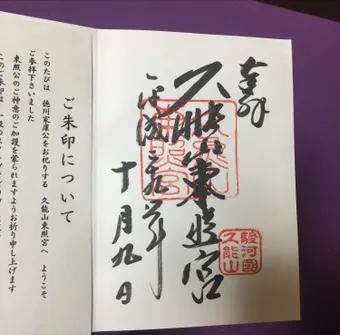 奉拝
久能山東照宮
久能山
東照宮
駿河國
久能山
平成二十九年
十月九日
ご朱印について
このたびは 徳川家康公をお祀りする 久能山東照宮へ ようこそ
ご参拝下さいました
東照公のご神意のご加護を蒙られますようお祈り申し上げます